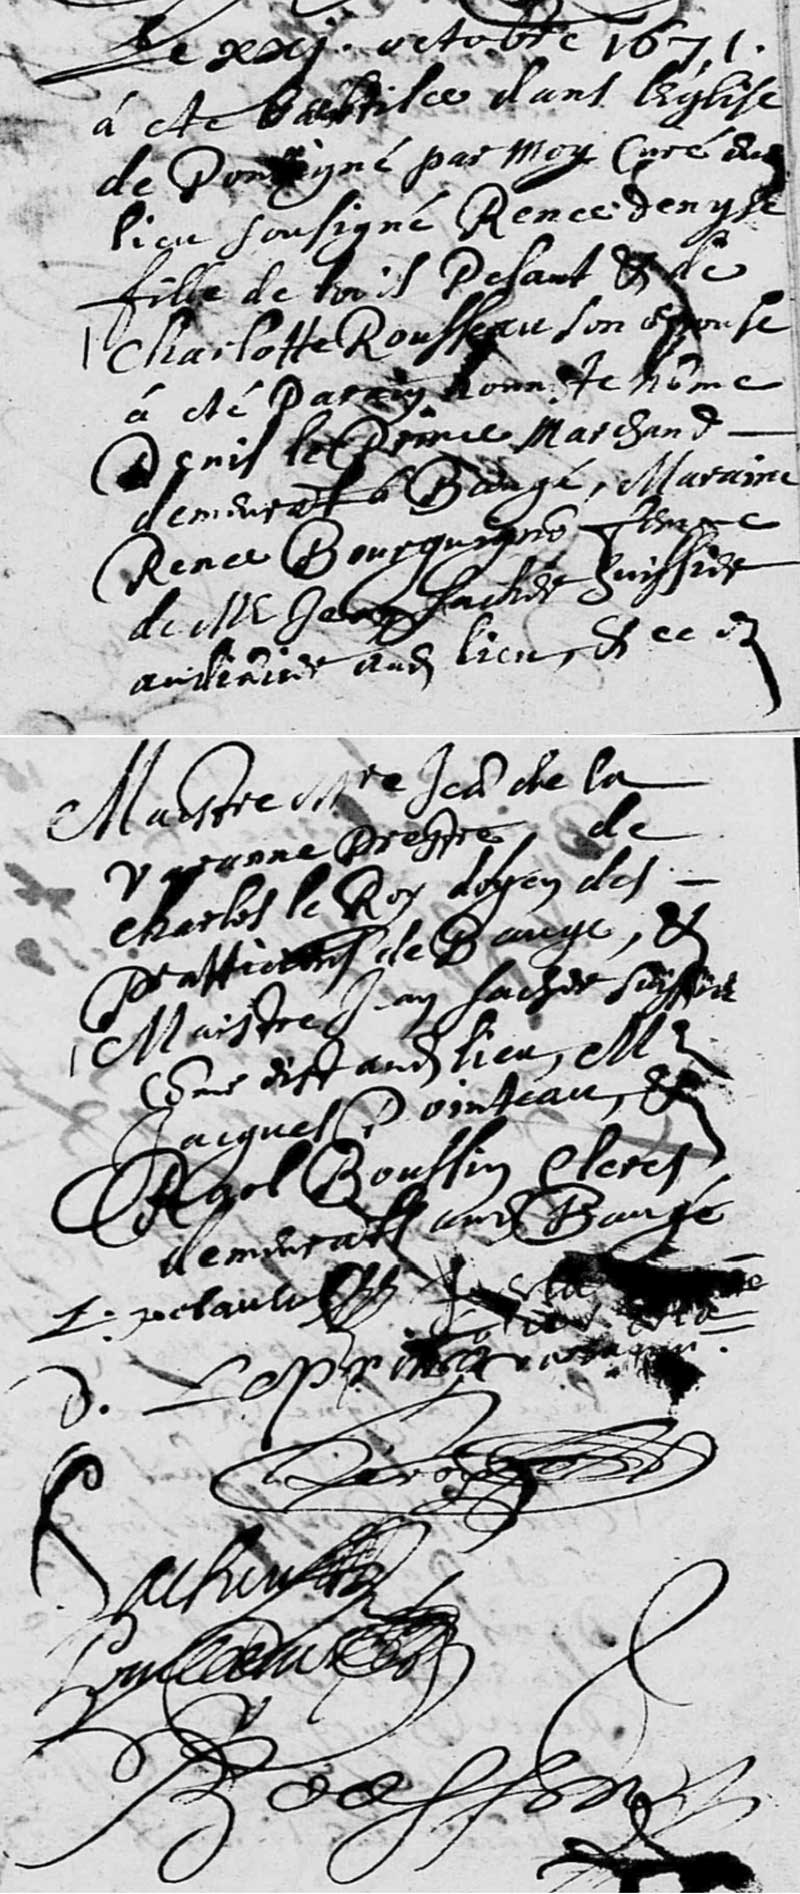 Le xxj. octobre 1671.
á eté baptisée dans l'Eglise
de Pontigné par moy Curé dud
lieu soussigné Renee denyse
fille de lois Pelaut & de
Charlotte Rousseau son espouse
á eté Parain honnete hôme
Denis le Prince Marchand
demeurat á Baugé, Maraine
Renee Bourguignô femme
de Me Jean sacher huissier
audiãcier aud lieu, & en
Maistre Mre Jeã de la
varanne Prestre, de
Charles le Roy doyen des
pratticiens de Baugé, &
Maistre Jean sacher huissier
Côme dist aud lieu, Me
Jacques Pointeau, &
Boussin Clercs
demeurats aud Baugé
L: pelaut
D. Leprince
Leroy
Sacher
Boessin